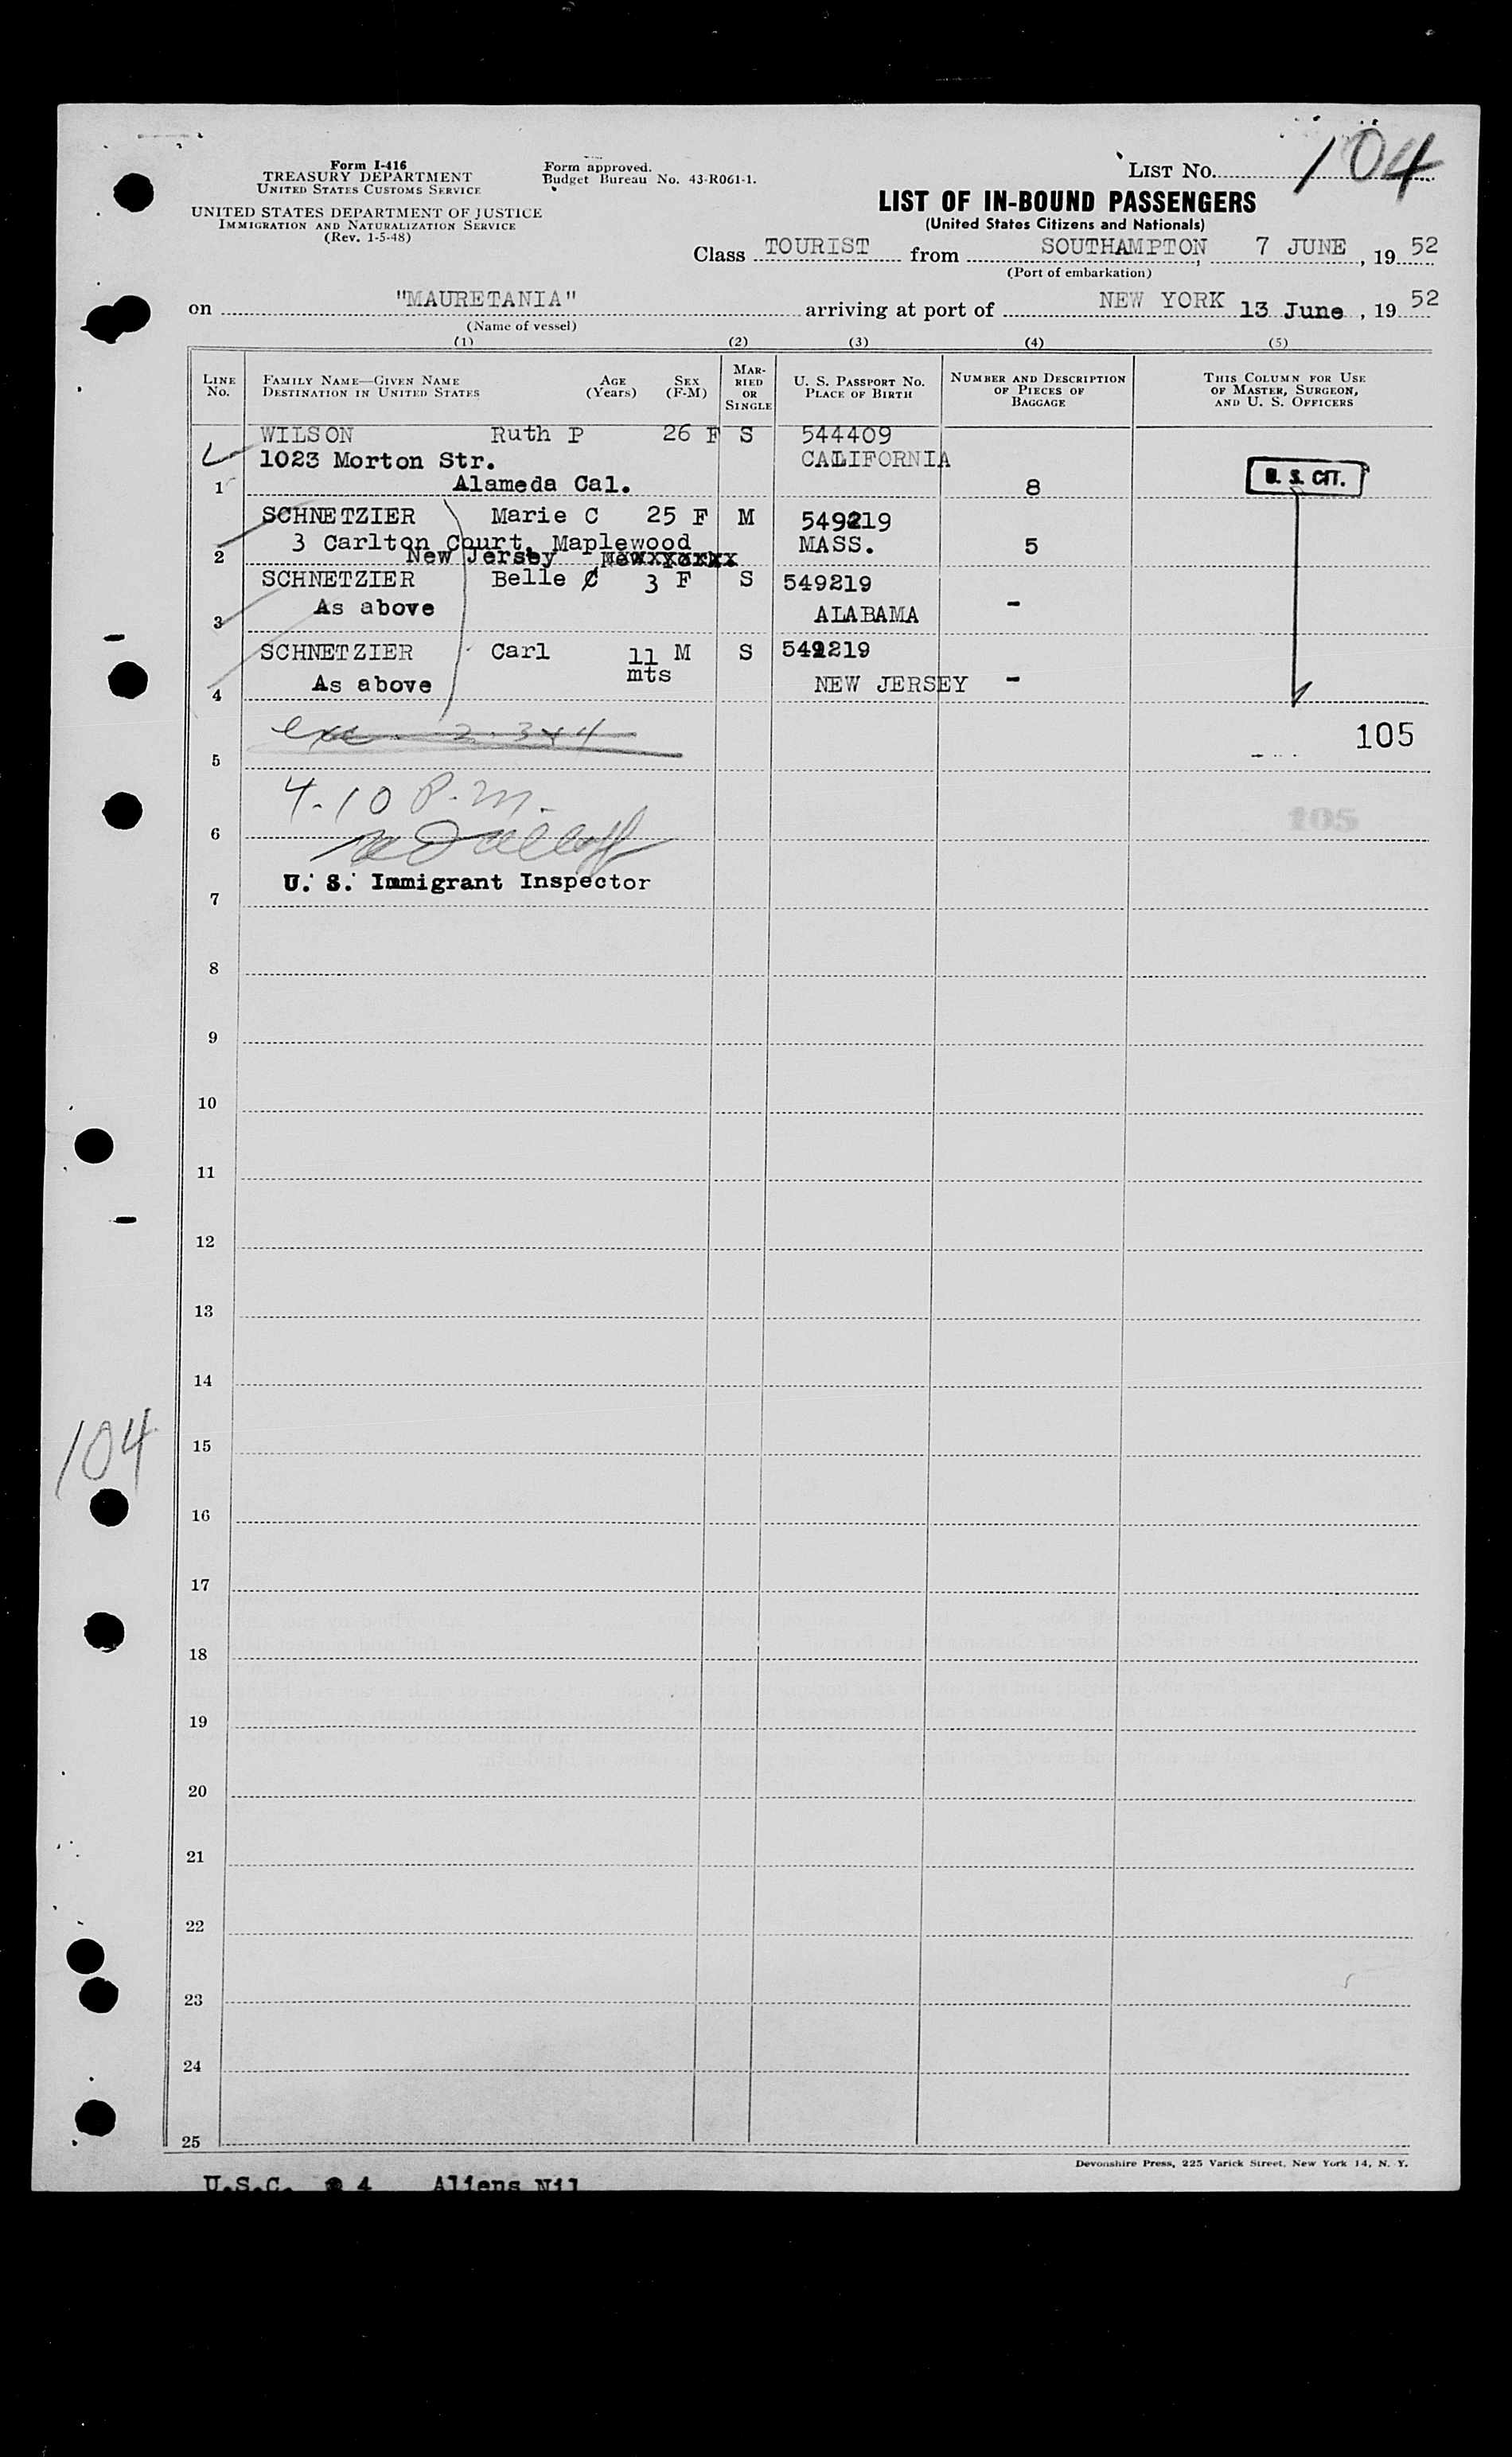 Form I-416
TREASURY DEPARTMENT
UNITED STATES CUSTOMS SERVICE
UNITED STATES DEPARTMENT OF JUSTICE
IMMIGRATION AND NATURALIZATION SERVICE
(Rev. 1-5-48)
Form approved.
Budget Bureau No. 43-R061-1.
LIST NO. 104
LIST OF IN-BOUND PASSENGERS
(United States Citizens and Nationals)
Class TOURIST from SOUTHAMPTON, 7 JUNE, 19 52
(Port of embarkation)
on "MAURETANIA" arriving at port of NEW YORK 13 June, 19 52
(Name of vessel)
(1) (2) (3) (4) (5)
LINE NO.
FAMILY NAME—GIVEN NAME
DESTINATION IN UNITED STATES
AGE (Years)
SEX (F-M)
MARRIED OR SINGLE
U. S. PASSPORT NO.
PLACE OF BIRTH
NUMBER AND DESCRIPTION OF PIECES OF BAGGAGE
THIS COLUMN FOR USE OF MASTER, SURGEON, AND U. S. OFFICERS
WILSON Ruth P 26 F S 544409
1023 Morton Str. CALIFORNIA
1 Alameda Cal. 8 U. S. CIT.
SCHNETZIER Marie C 25 F M 549219
3 Carlton Court, Maplewood MASS. 5
2 New Jersey
SCHNETZIER Belle C 3 F S 549219
3 As above ALABAMA -
SCHNETZIER Carl 11 mts M S 549219
4 As above NEW JERSEY -
5 exc. 2. 3 x 4 105
4.10 P.m.
6 105
U. S. Immigrant Inspector
7
8
9
10
11
12
13
14
104
15
16
17
18
19
20
21
22
23
24
25
Devonshire Press, 225 Varick Street, New York 14, N. Y.
U.S.C. 4 Aliens Nil